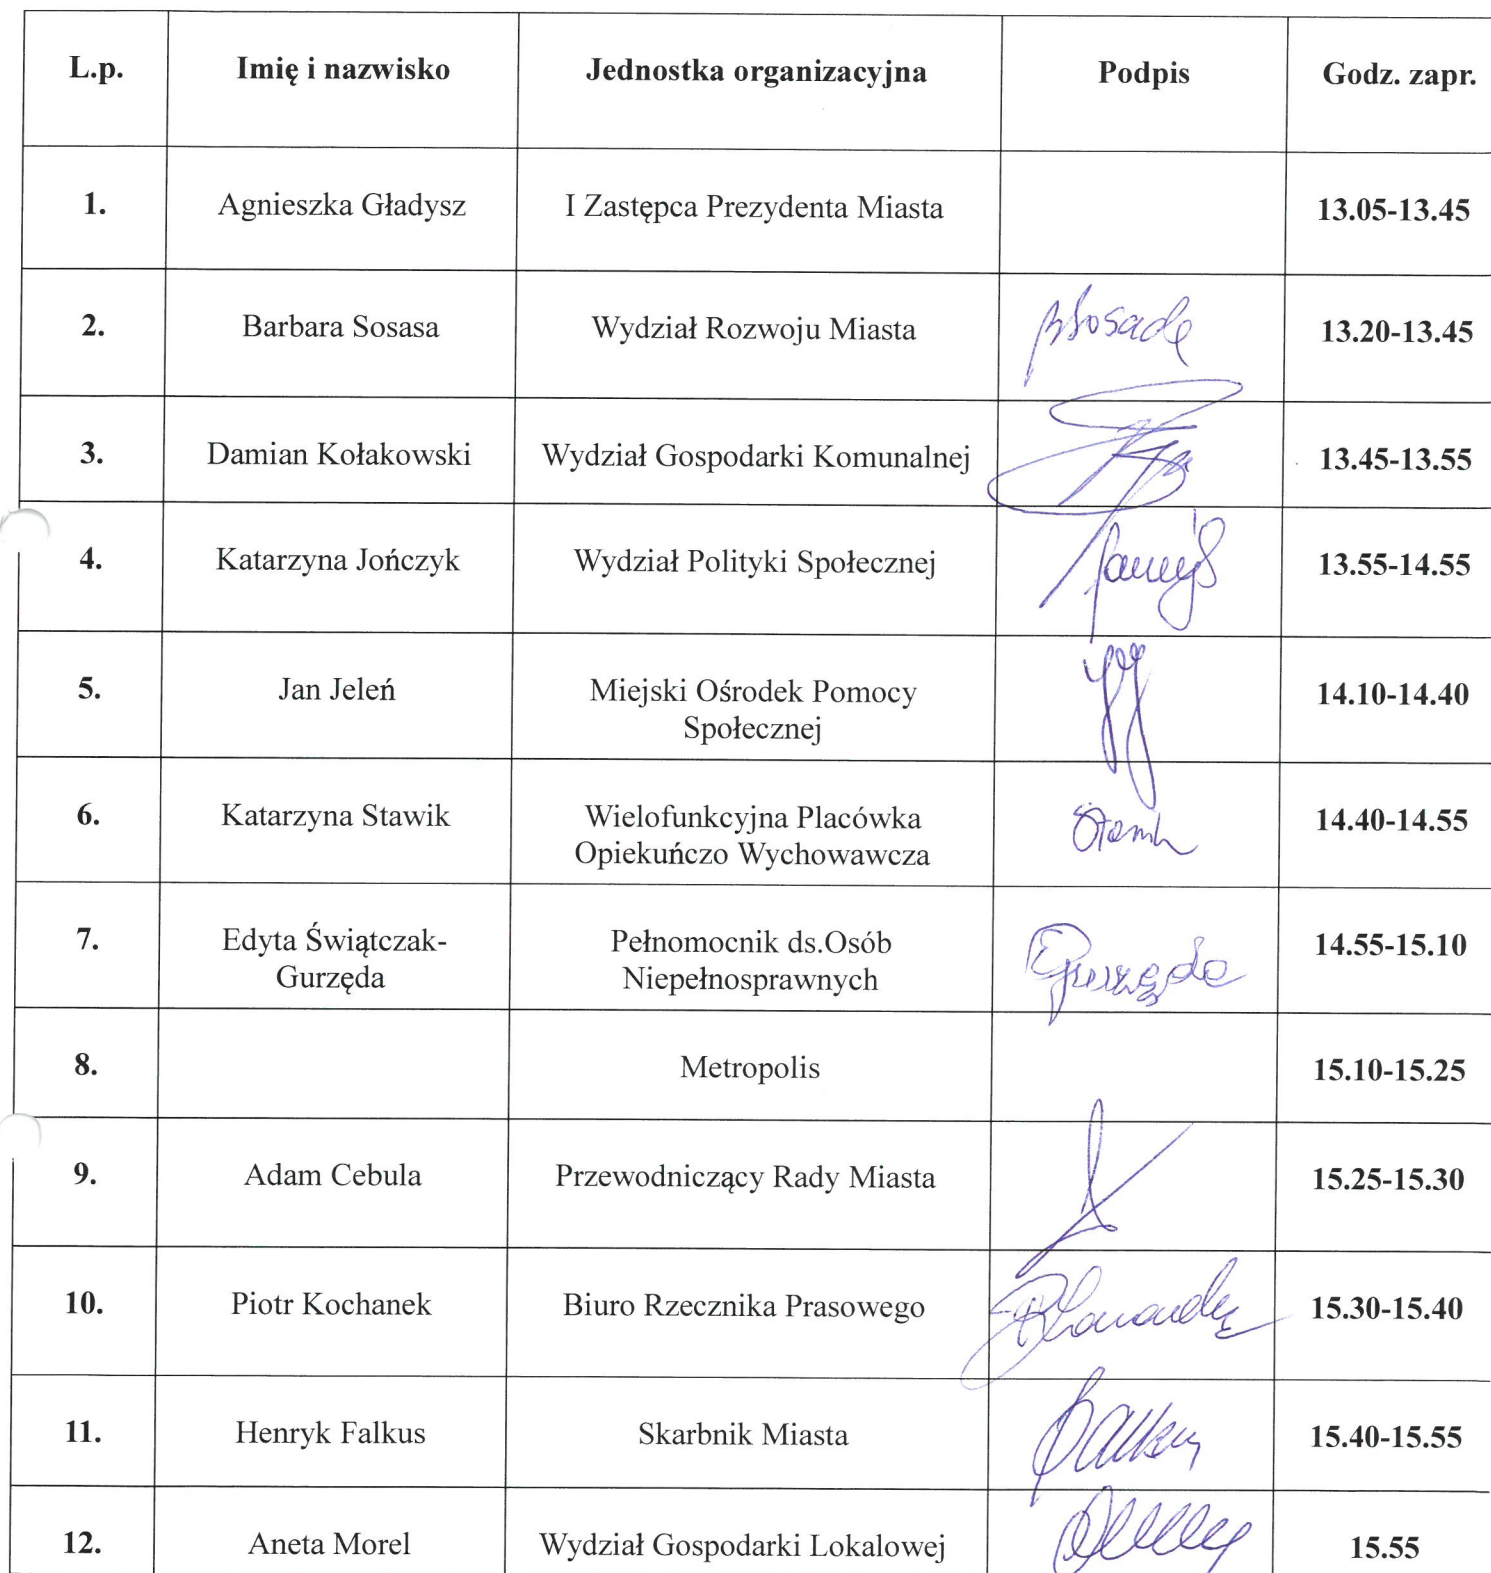 L.p. Imię i nazwisko Jednostka organizacyjna Podpis Godz. zapr.
1. Agnieszka Gładysz I Zastępca Prezydenta Miasta 13.05-13.45
2. Barbara Sosasa Wydział Rozwoju Miasta 13.20-13.45
3. Damian Kołakowski Wydział Gospodarki Komunalnej 13.45-13.55
4. Katarzyna Jończyk Wydział Polityki Społecznej 13.55-14.55
5. Jan Jeleń Miejski Ośrodek Pomocy 14.10-14.40
Społecznej
6. Katarzyna Stawik Wielofunkcyjna Placówka 14.40-14.55
Opiekuńczo Wychowawcza
7. Edyta Świątczak- Pełnomocnik ds.Osób 14.55-15.10
Gurzęda Niepełnosprawnych
8. Metropolis 15.10-15.25
9. Adam Cebula Przewodniczący Rady Miasta 15.25-15.30
10. Piotr Kochanek Biuro Rzecznika Prasowego 15.30-15.40
11. Henryk Falkus Skarbnik Miasta 15.40-15.55
12. Aneta Morel Wydział Gospodarki Lokalowej 15.55